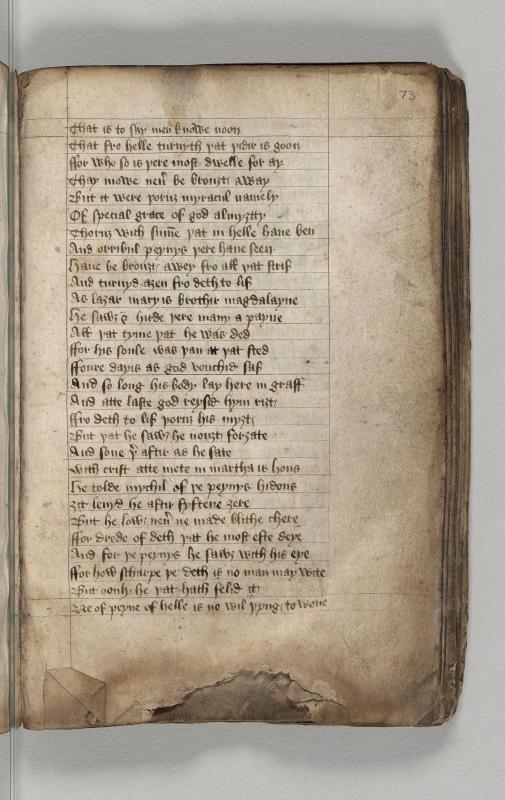 73
That is to say men knowe noon
That fro helle turnyth þat þidir is goon
ffor who so is þere most dwelle for ay
Thay mowe neū be brouzt away
But it were þoruz myracul namely
Of special grace of god almyzty
Thoruz wich sūme þat in helle haue ben
And orribul peynys þere haue seen
Haue be brouzt awey fro all þat strif
And turnyd azen fro deth to lif
As lazar maryis brothir magdalayne
He sawz & hirde þere many a payne
All þat tyme þat he was ded
ffor his soule was þan at þat sted
ffoure dayis as god vouchid saf
And so long his body lay here in graff
And atte laste god reysid hym rizt
ffro deth to lif þoruz his myzt
But þat he sawz he nouzt forzate
And sone þ aftir as he sate
with crist atte mete in martha is hous
He tolde mychil of þe peynys hidous
zit leuyd he aftir fyftene zere
But he lowz neū ne made blithe chere
ffor drede of deth þat he most efte deye
And for þe peynys he sawz with his eye
ffor how scharpe þe deth is no man may wite
But oonly he þat hath felid it
Ne of peyne of helle is no wil pyng to wone